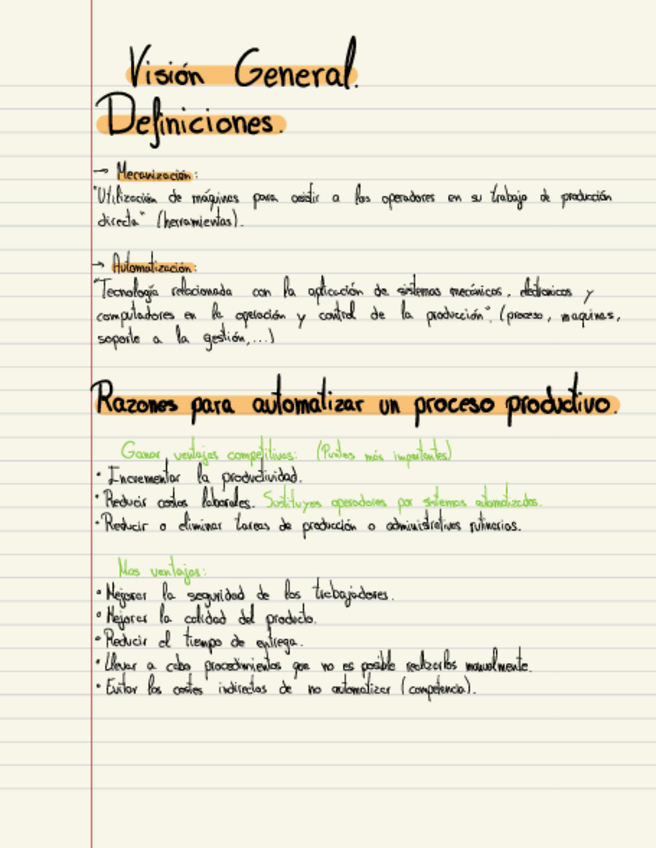 Visión General.
Definiciones.
→ Mecanización:
"Utilización de máquinas para asistir a los operadores en su trabajo de producción
directa" (herramientas).
→ Automatización:
"Tecnología relacionada con la aplicación de sistemas mecánicos, electronicos y
computadores en la operación y control de la producción". (proceso, maquinas,
soporte a la gestión,...)
Razones para automatizar un proceso productivo.
Ganar ventajas competitivas: (Puntos más importantes)
• Incrementar la productividad.
• Reducir costos laborales. Sustituyes operadores por sistemas automatizados.
• Reducir o eliminar tareas de producción o administrativas rutinarias.
Mas ventajas:
• Mejorar la seguridad de los trabajadores.
• Mejorar la calidad del producto.
• Reducir el tiempo de entrega.
• Llevar a cabo procedimientos que no es posible realizarlos manualmente.
• Evitar los costes indirectos de no automatizar (competencia).